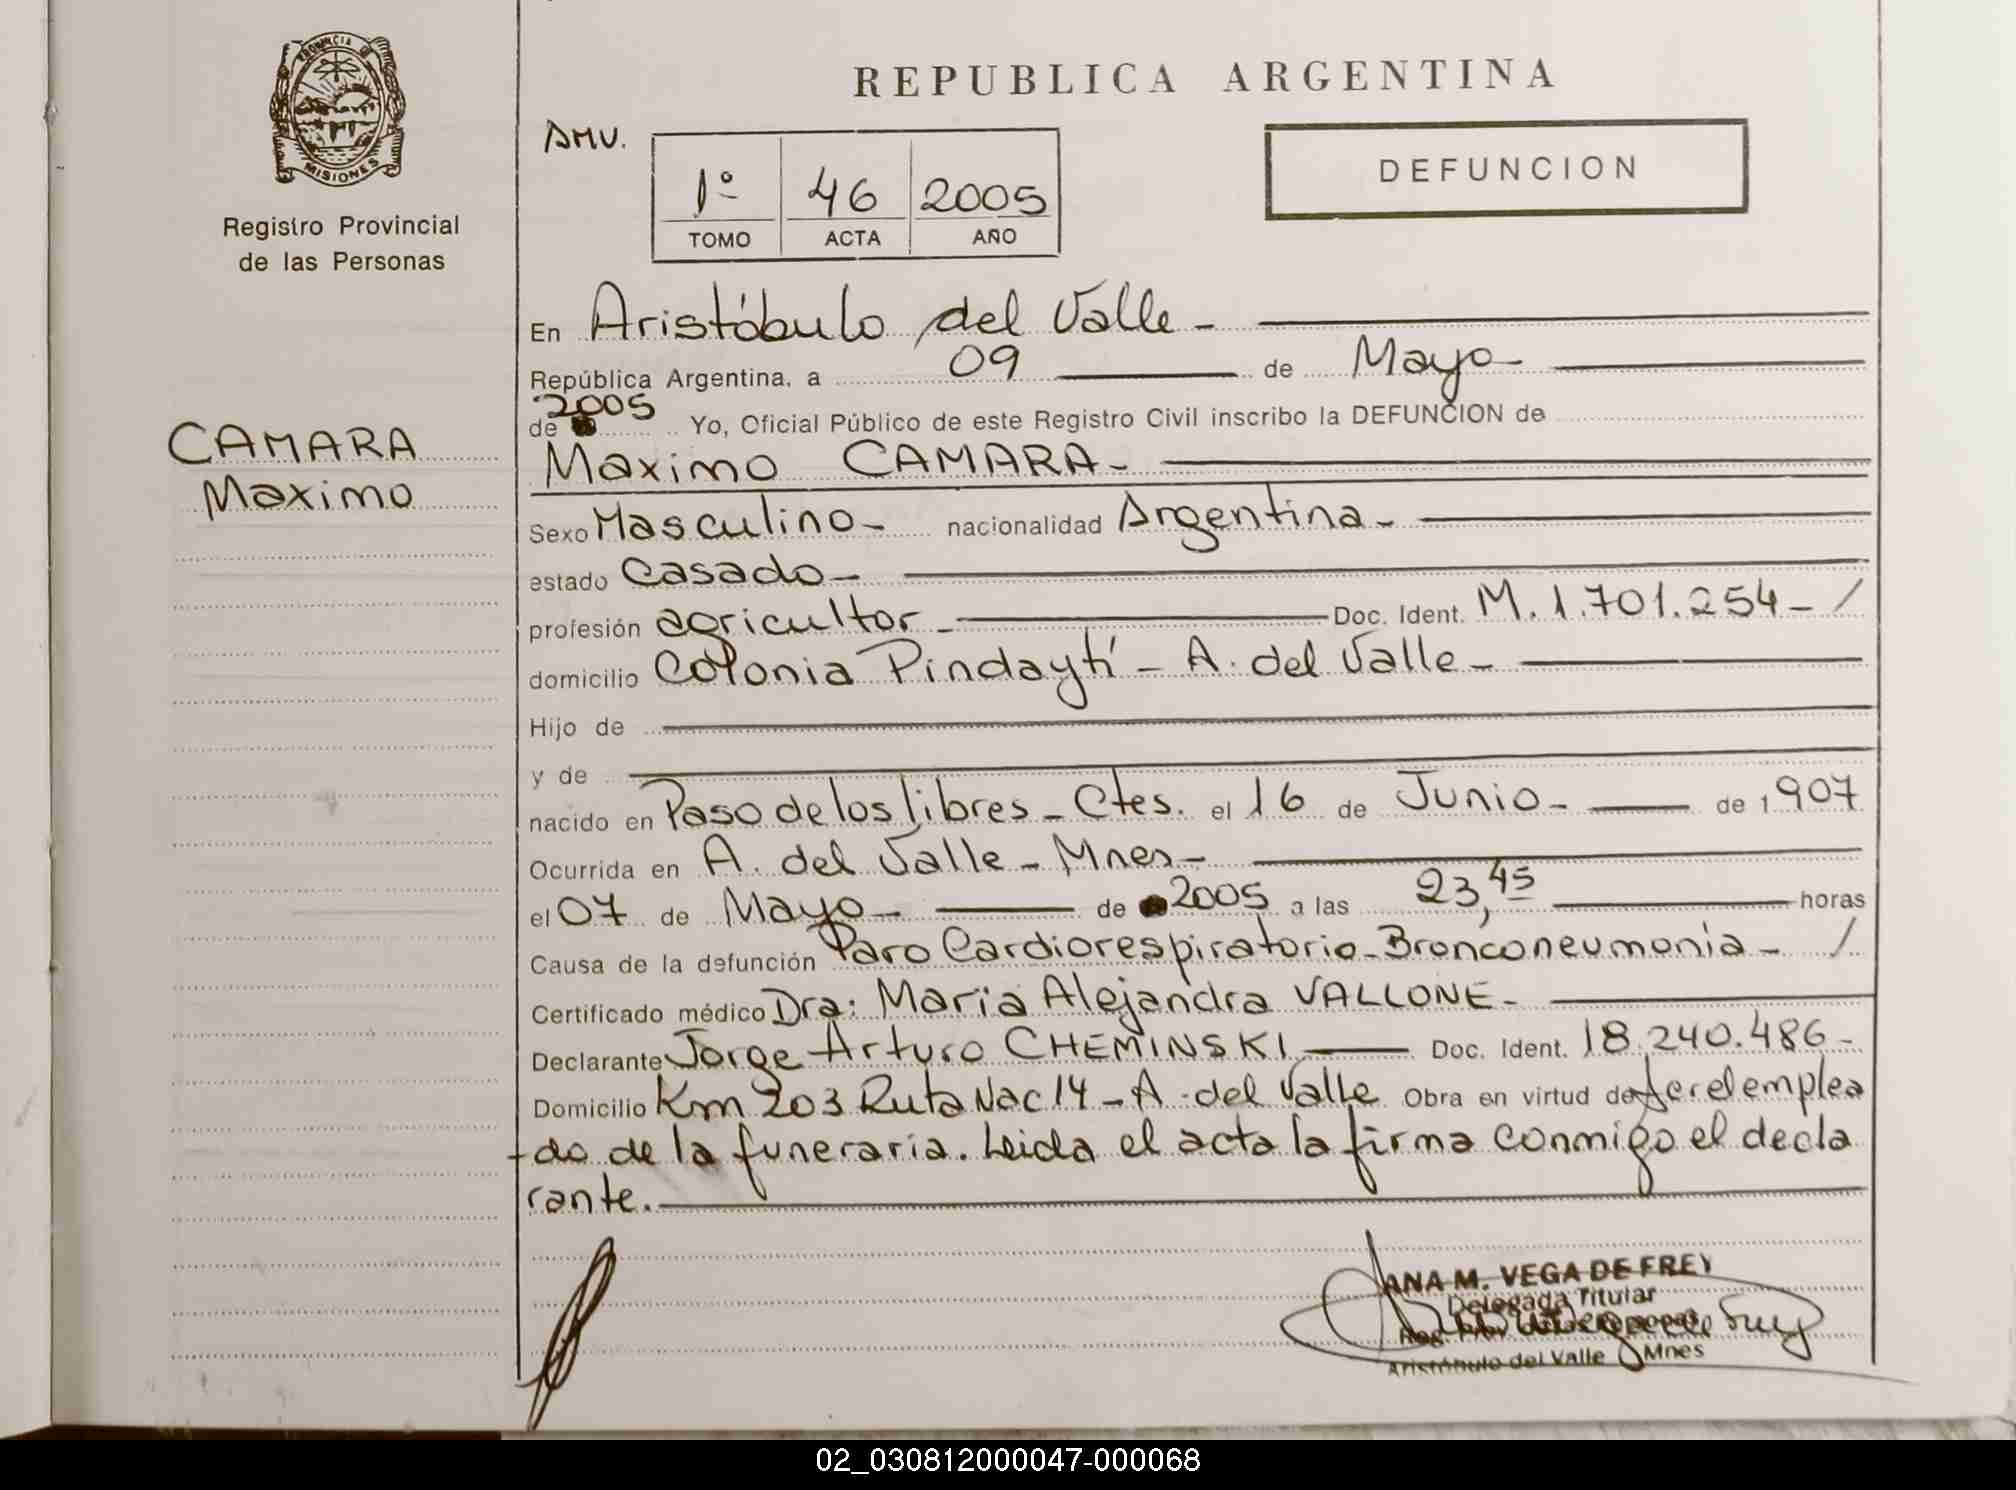 PROVINCIA DE
MISIONES
Registro Provincial
de las Personas
CAMARA
Maximo
REPUBLICA ARGENTINA
AMV.
1º 46 2005
TOMO ACTA AÑO
DEFUNCION
En Aristóbulo del Valle -
República Argentina, a 09 de Mayo -
de 2005 Yo, Oficial Público de este Registro Civil inscribo la DEFUNCION de
Maximo CAMARA -
Sexo Masculino - nacionalidad Argentina -
estado Casado -
profesión agricultor - Doc. Ident. M. 1.701.254 - /
domicilio Colonia Pindaytí - A. del Valle -
Hijo de
y de
nacido en Paso de los libres - Ctes. el 16 de Junio - de 1907
Ocurrida en A. del Valle - Mnes -
el 07 de Mayo - de 2005 a las 23,45 horas
Causa de la defunción Paro Cardiorespiratorio - Bronconeumonía - /
Certificado médico Dra: María Alejandra VALLONE -
Declarante Jorge Arturo CHEMINSKI Doc. Ident. 18.240.486 -
Domicilio Km 203 Ruta Nac 14 - A. del Valle Obra en virtud de ser el emplea
do de la funeraria. Leida el acta la firma conmigo el decla
rante.
ANA M. VEGA DE FREY
Delegada Titular
Aristóbulo del Valle Mnes
02_030812000047-000068